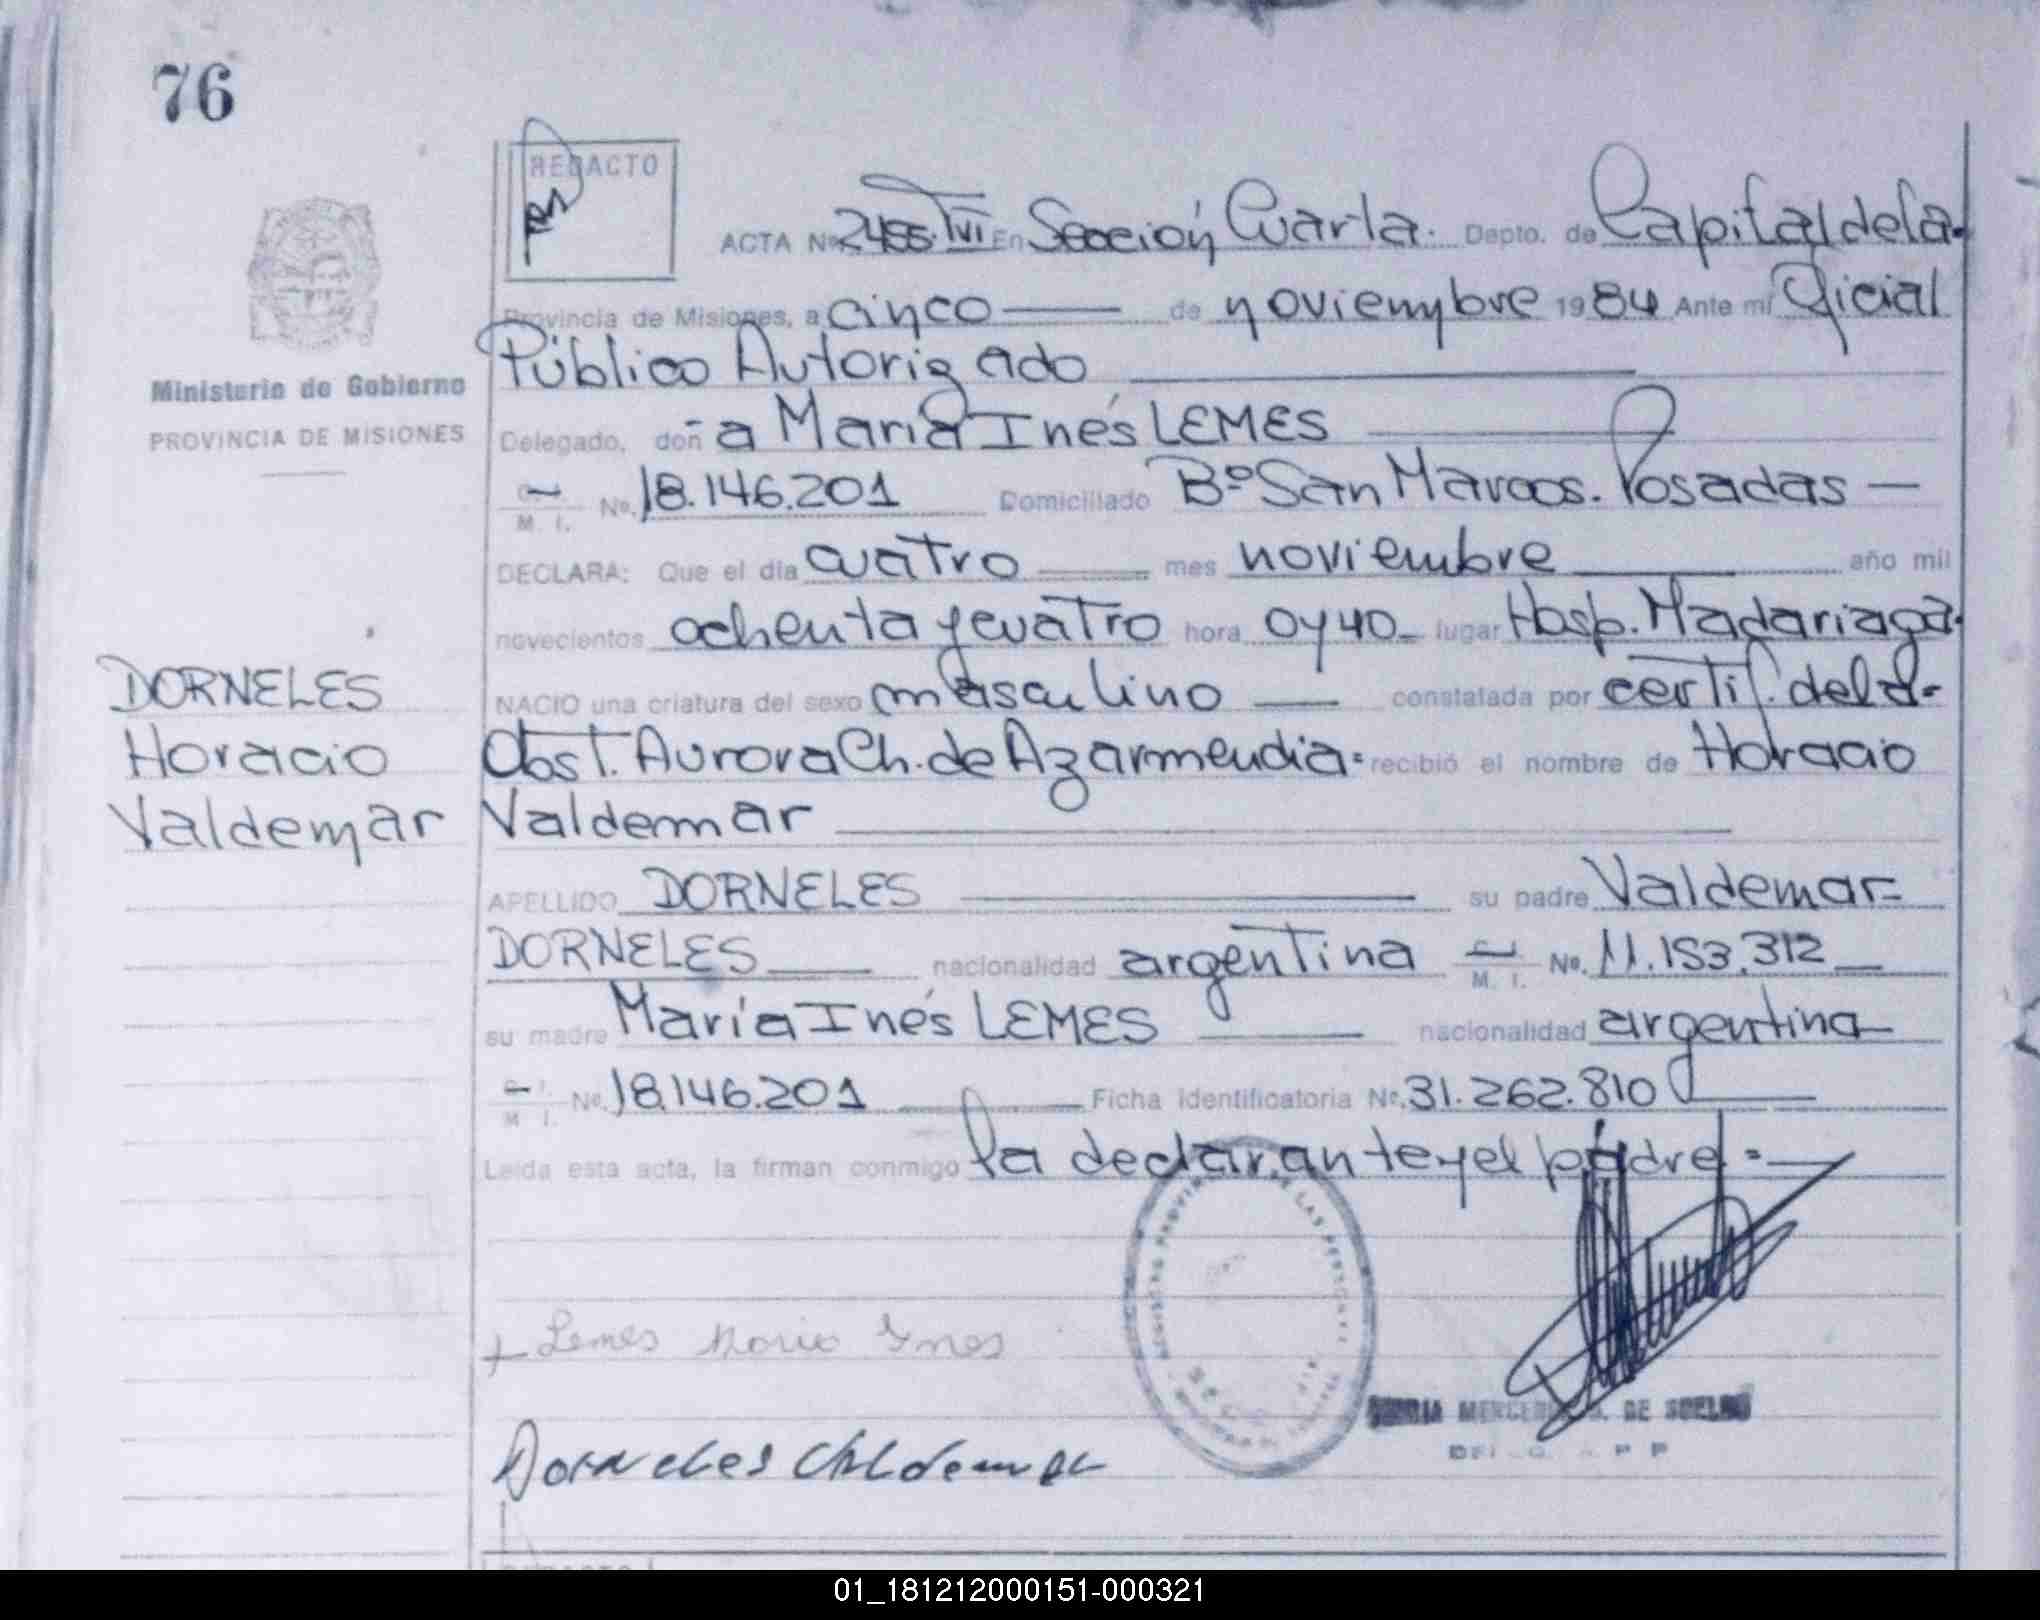 76
REDACTO
ACTA Nº 2455. TVI En Sección Cuarta. Depto. de Capital de la
Provincia de Misiones, a cinco de noviembre 1984 Ante mi Oficial
Público Autorizado
Ministerio de Gobierno
PROVINCIA DE MISIONES
Delegado, doña María Inés LEMES
M. I. No. 18.146.201 Domiciliado Bº San Marcos. Posadas
DECLARA: Que el día cuatro mes noviembre año mil
novecientos ochenta y cuatro hora 0 y 40 lugar Hosp. Madariaga.
NACIO una criatura del sexo masculino constatada por certif. de la
DORNELES
Horacio
Valdemar
Obst. Aurora Ch. de Azarmendia. recibió el nombre de Horacio
Valdemar
APELLIDO DORNELES su padre Valdemar
DORNELES nacionalidad argentina M. I. No. 11.153.312
su madre María Inés LEMES nacionalidad argentina
M I. No. 18.146.201 Ficha identificatoria No. 31.262.810
Leída esta acta, la firman conmigo la declarante y el padre.
REGISTRO PROVINCIAL DE LAS PERSONAS
Lemes Maria Ynes
MERCEDES DE
Dorneles Valdemar
REDACTO
01_181212000151-000321